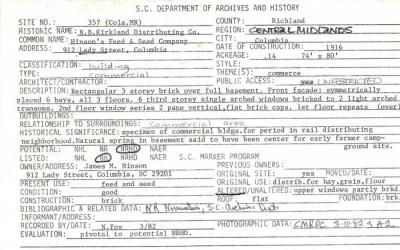 S.C. DEPARTMENT OF ARCHIVES AND HISTORY
SITE NO.: 357 (Cola.MR) COUNTY: Richland
HISTORIC NAME: B.B.Kirkland Distributing Co. REGION: CENTRAL MIDLANDS
COMMON NAME: Hinson's Feed & Seed Company CITY: Columbia
ADDRESS: 912 Lady Street, Columbia DATE OF CONSTRUCTION: 1916
ACREAGE: .14 74' x 80'
CLASSIFICATION: building STYLE:
TYPE: commercial THEME(S): commerce
ARCHITECT/CONTRACTOR: PUBLIC ACCESS: yes UNRESTRICTED
DESCRIPTION: Rectangular 3 storey brick over full basement. Front facade: symmetrically
placed 6 bays, all 3 floors. 6 third storey single arched windows bricked to 2 light arched
transoms. 2nd floor window series 2 pane vertical, flat brick caps, 1st floor repeats (over)
OUTBUILDINGS:
RELATIONSHIP TO SURROUNDINGS: commercial area
HISTORICAL SIGNIFICANCE: specimen of commercial bldgs. for period in rail distributing
neighborhood. Natural spring in basement said to have been center for early farmer camp-
POTENTIAL: NHL NR NRHD NAER ground site.
LISTED: NHL NR NRHD NAER S.C. MARKER PROGRAM
OWNER/ADDRESS: James M. Hinson PREVIOUS OWNERS:
912 Lady Street, Columbia, SC 29201 ORIGINAL SITE: yes MOVED/DATE:
PRESENT USE: feed and seed ORIGINAL USE: distrib. for hay, grain, flour
CONDITION: good ALTERED/UNALTERED: upper windows partly brkd.
CONSTRUCTION: brick ROOF: flat FOUNDATION: brk.
BIBLIOGRAPHIC & RELATED DATA: NR Nomination, S.C. Archives Dept
INFORMANT/ADDRESS:
RECORDED BY/DATE: N.Fox 3/82 PHOTOGRAPHIC DATA: CMRPC 3-10-82
EVALUATION: pivotal to potential NRHD.